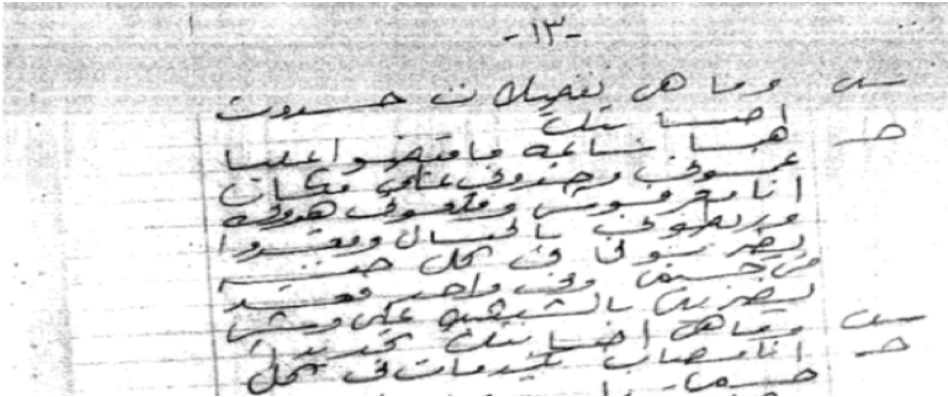 -١٣-
س وما هي تفصيلات حدوث
اصابتك
ج هما ساعة ما قبضوا عليا
غموني وخدوني على مكان
انا معرفوش وقلعوني هدومي
وربطوني بالحبال وقعدوا
يضربوني في كل حته
في جسمي وفي واحد قعد
يضربني بالشبشب على وشي
س وما هي اصابتك تحديدا
ج انا مصاب بكدمات في كل